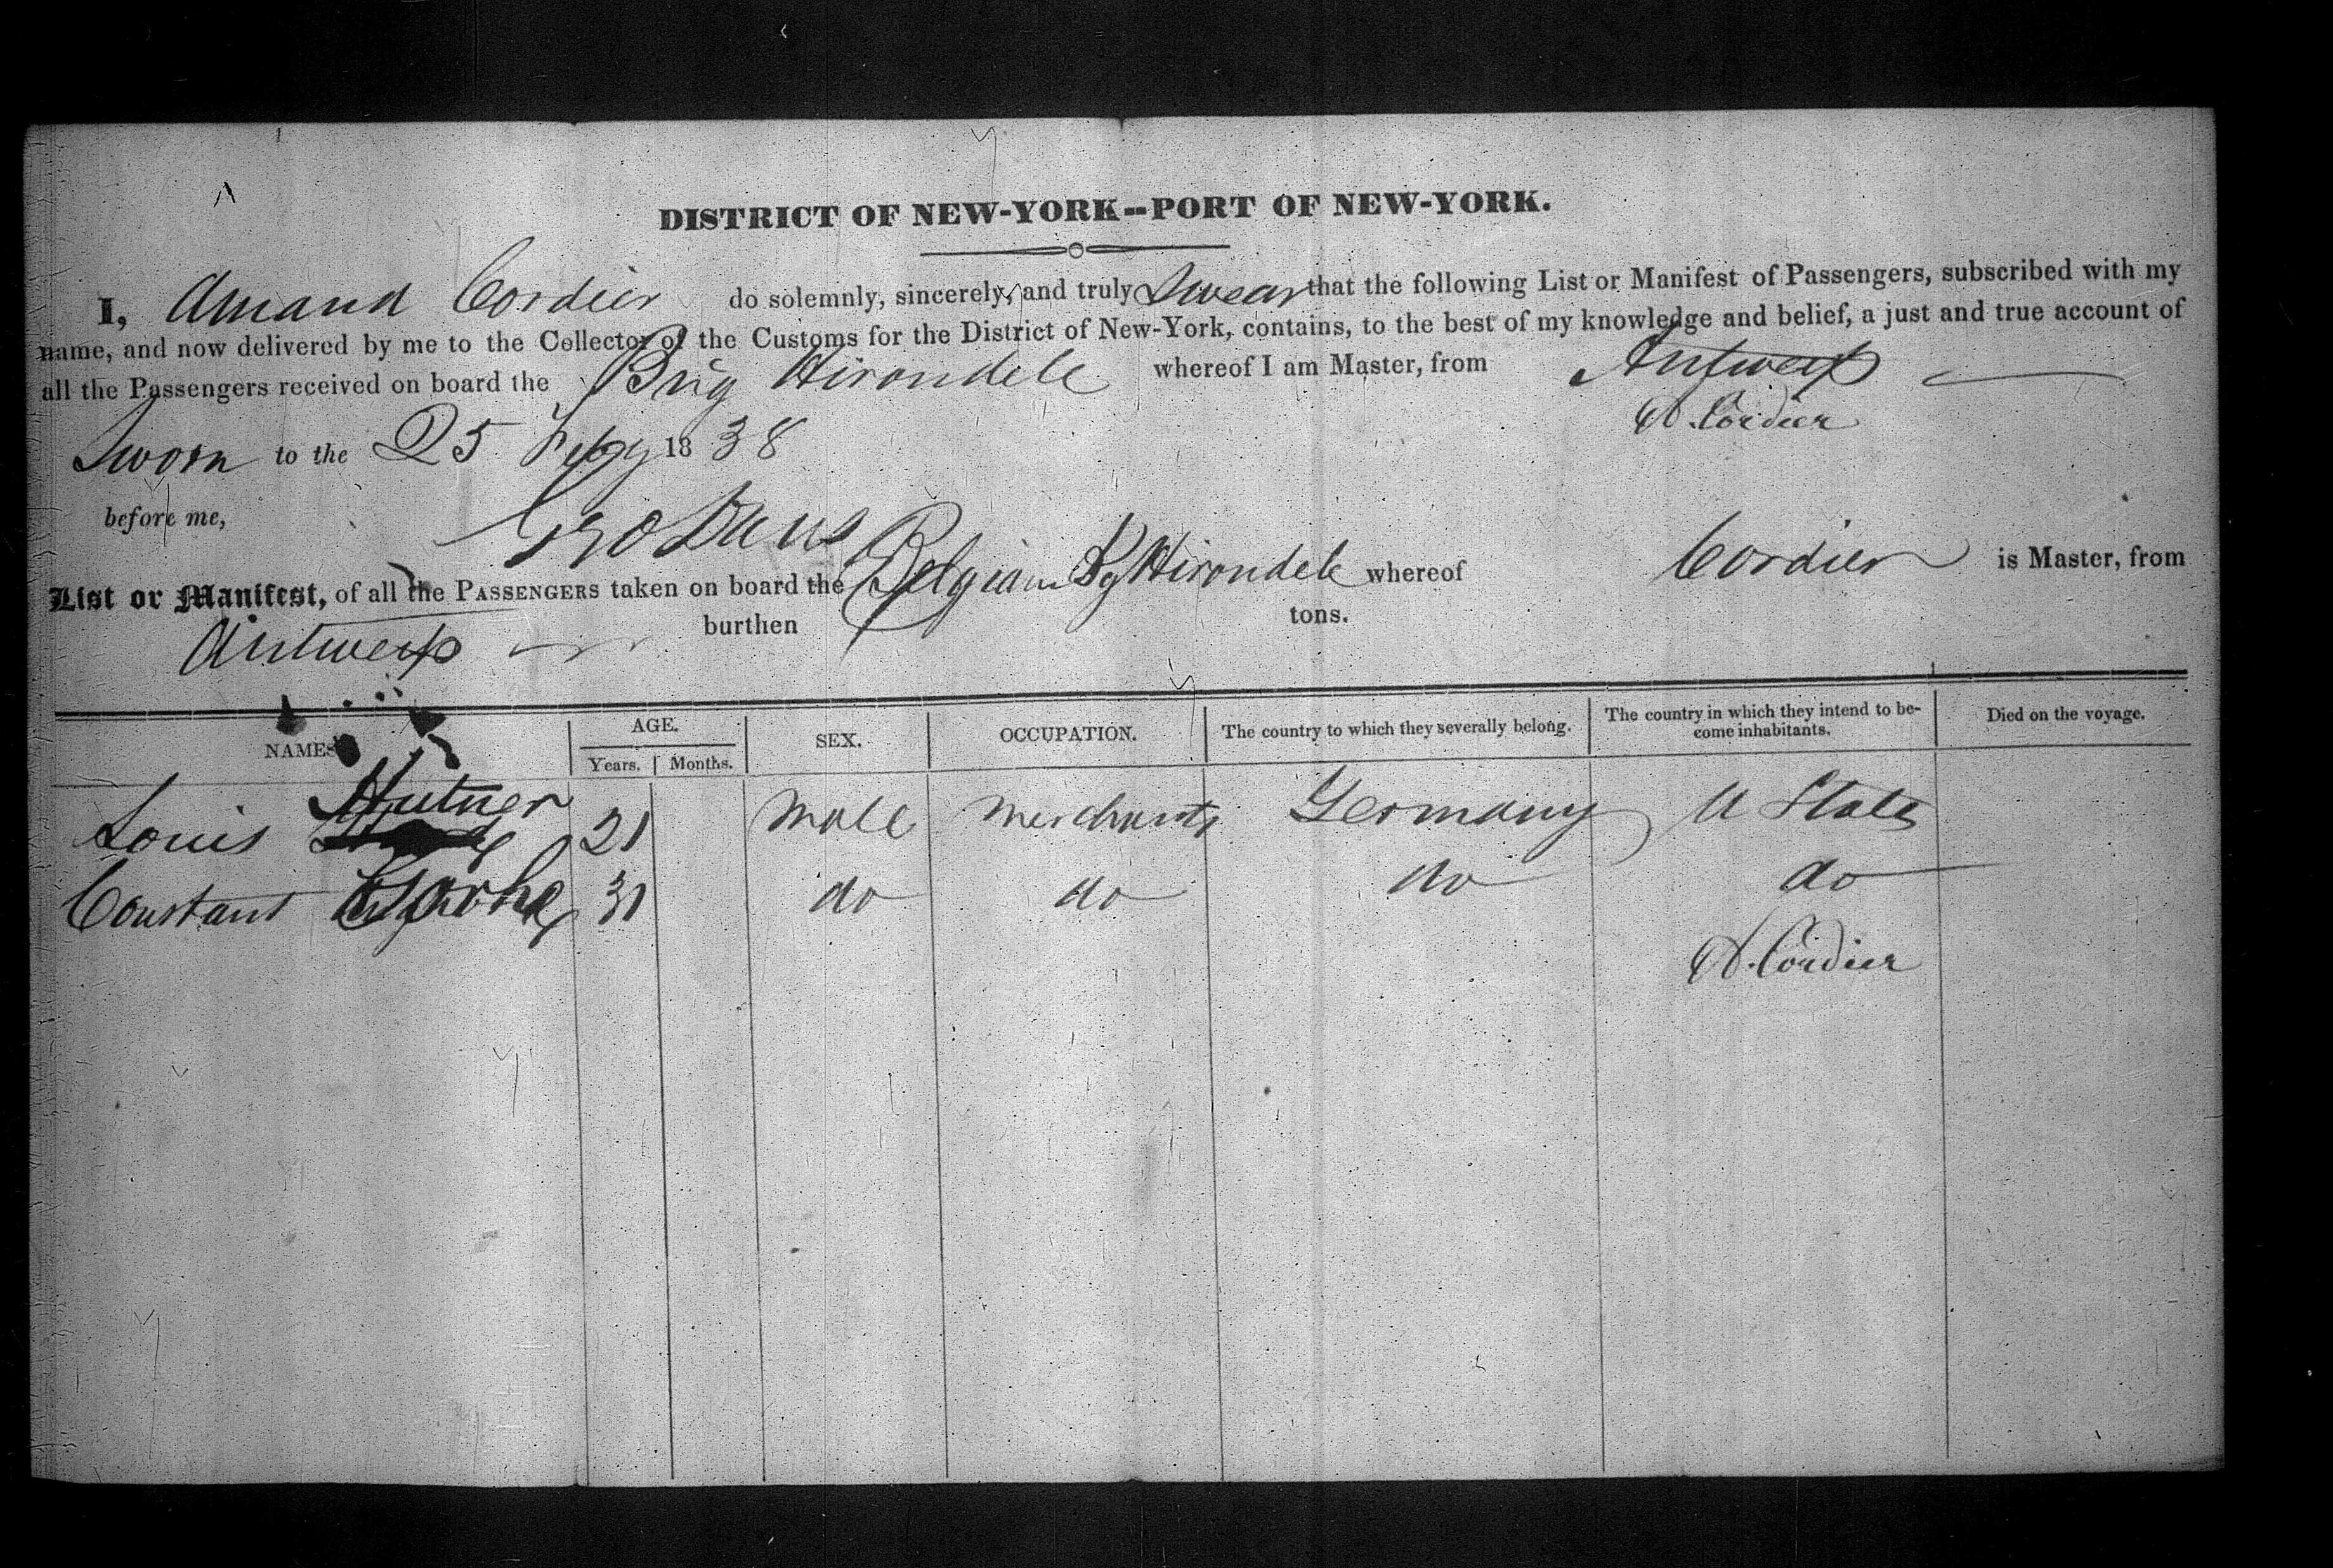 DISTRICT OF NEW-YORK--PORT OF NEW-YORK.
I, Amand Cordier do solemnly, sincerely, and truly Swear that the following List or Manifest of Passengers, subscribed with my
name, and now delivered by me to the Collector of the Customs for the District of New-York, contains, to the best of my knowledge and belief, a just and true account of
all the Passengers received on board the Brig Hirondele whereof I am Master, from Antwerp
A. Cordier
Sworn to the 25 Feby 1838
before me,
List or Manifest, of all the PASSENGERS taken on board the Belgian Bg Hirondele whereof Cordier is Master, from
Antwerp burthen tons.
NAMES AGE. Years. Months. SEX. OCCUPATION. The country to which they severally belong. The country in which they intend to be-come inhabitants. Died on the voyage.
Louis Hutner 21 Male Merchants Germany U States
Constant 31 do do do do
A. Cordier